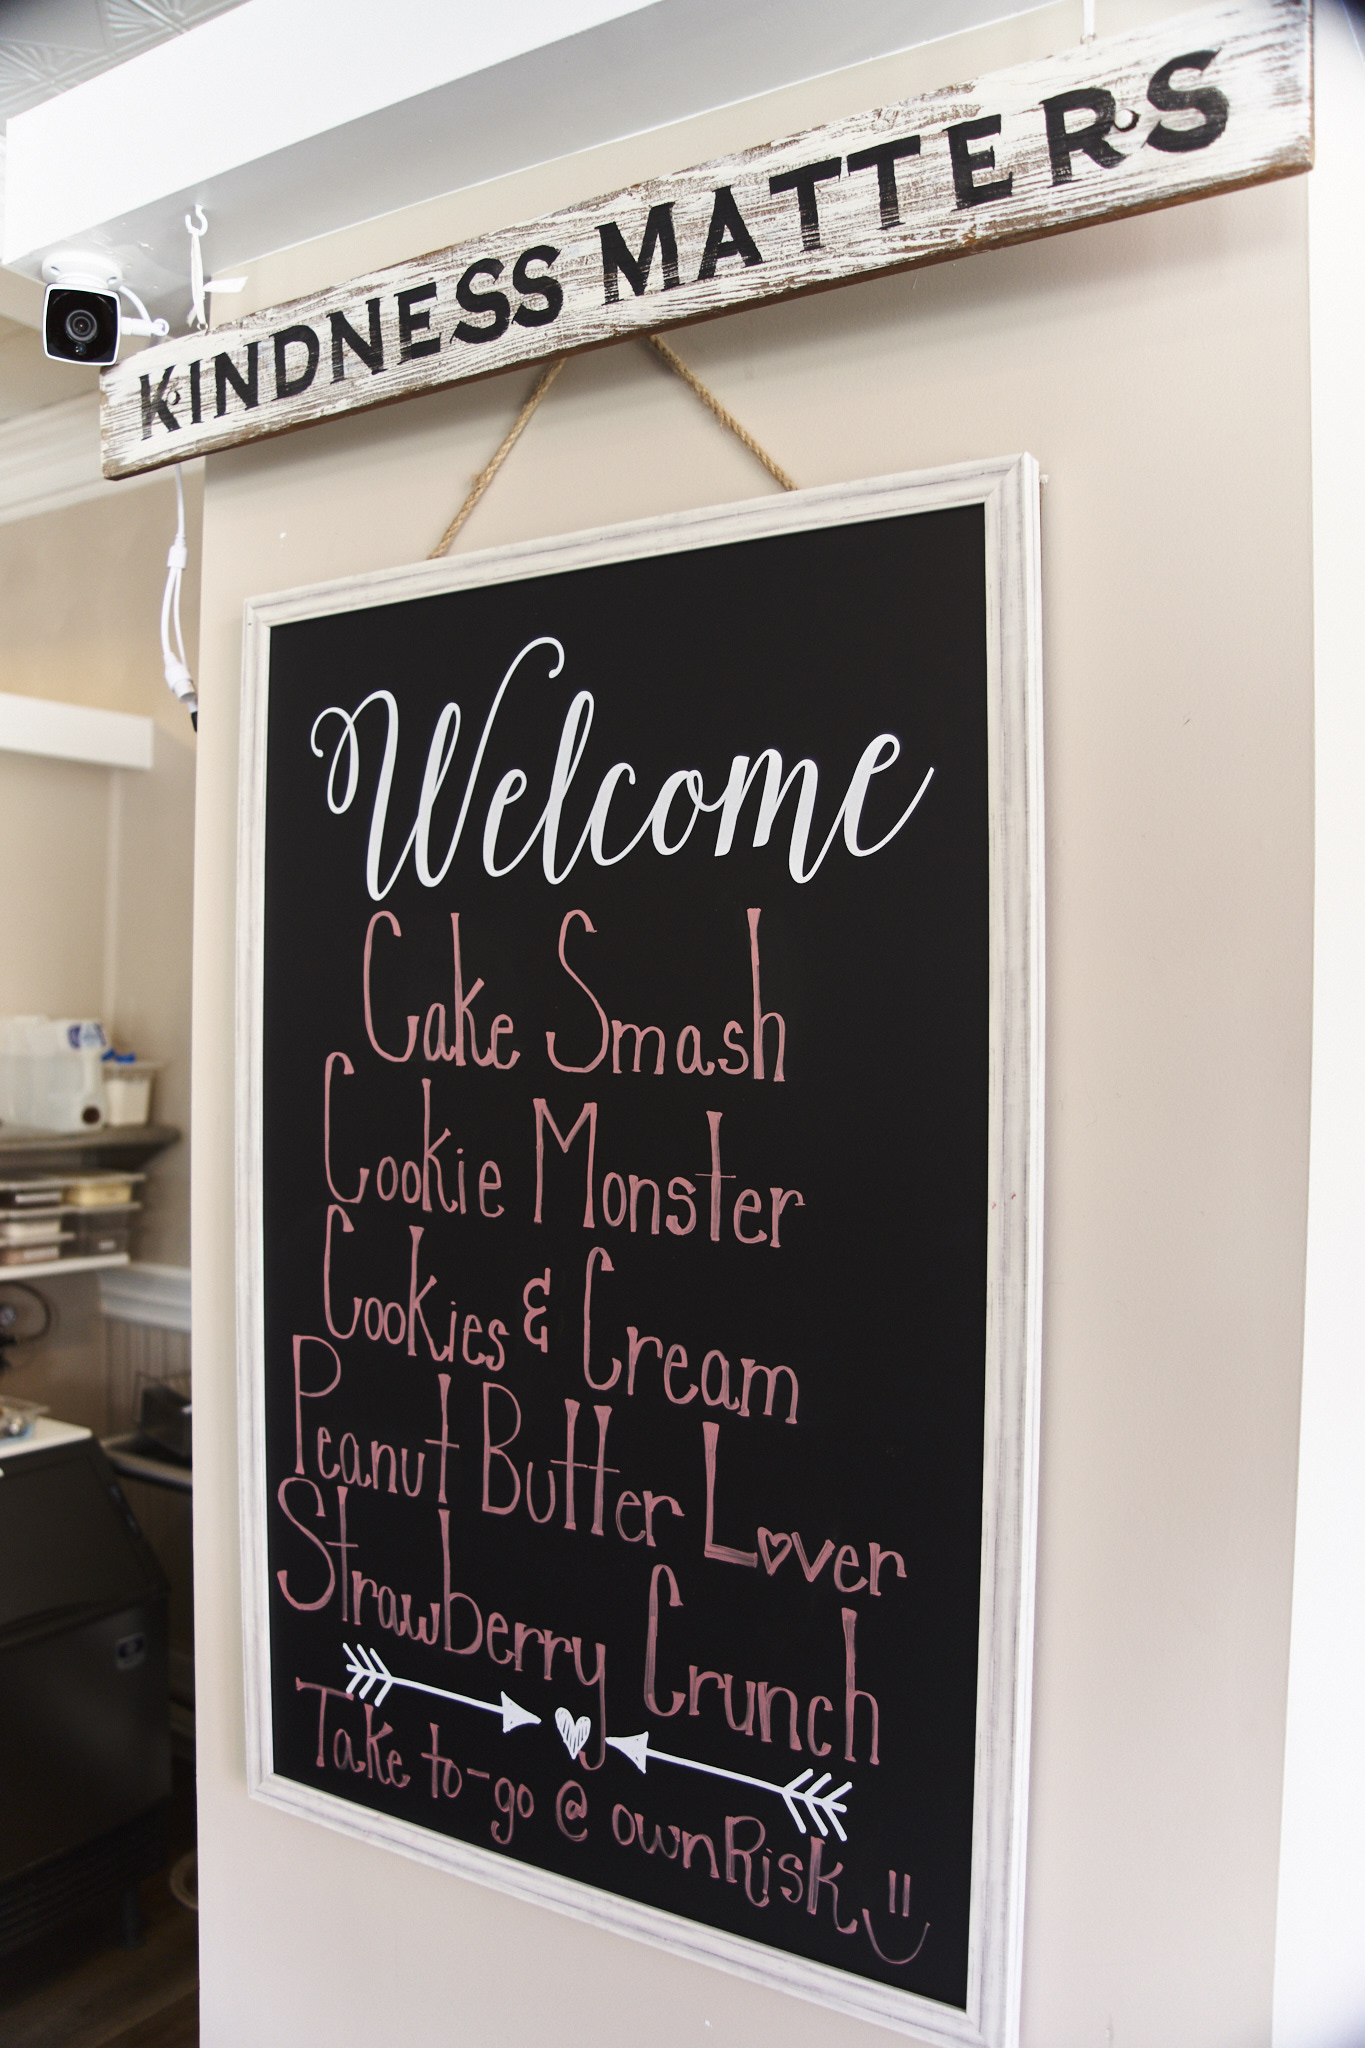 KINDNESS MATTERS
Welcome
Cake Smash
Cookie Monster
Cookies & Cream
Peanut Butter Lover
Strawberry Crunch
Take to-go @ own Risk